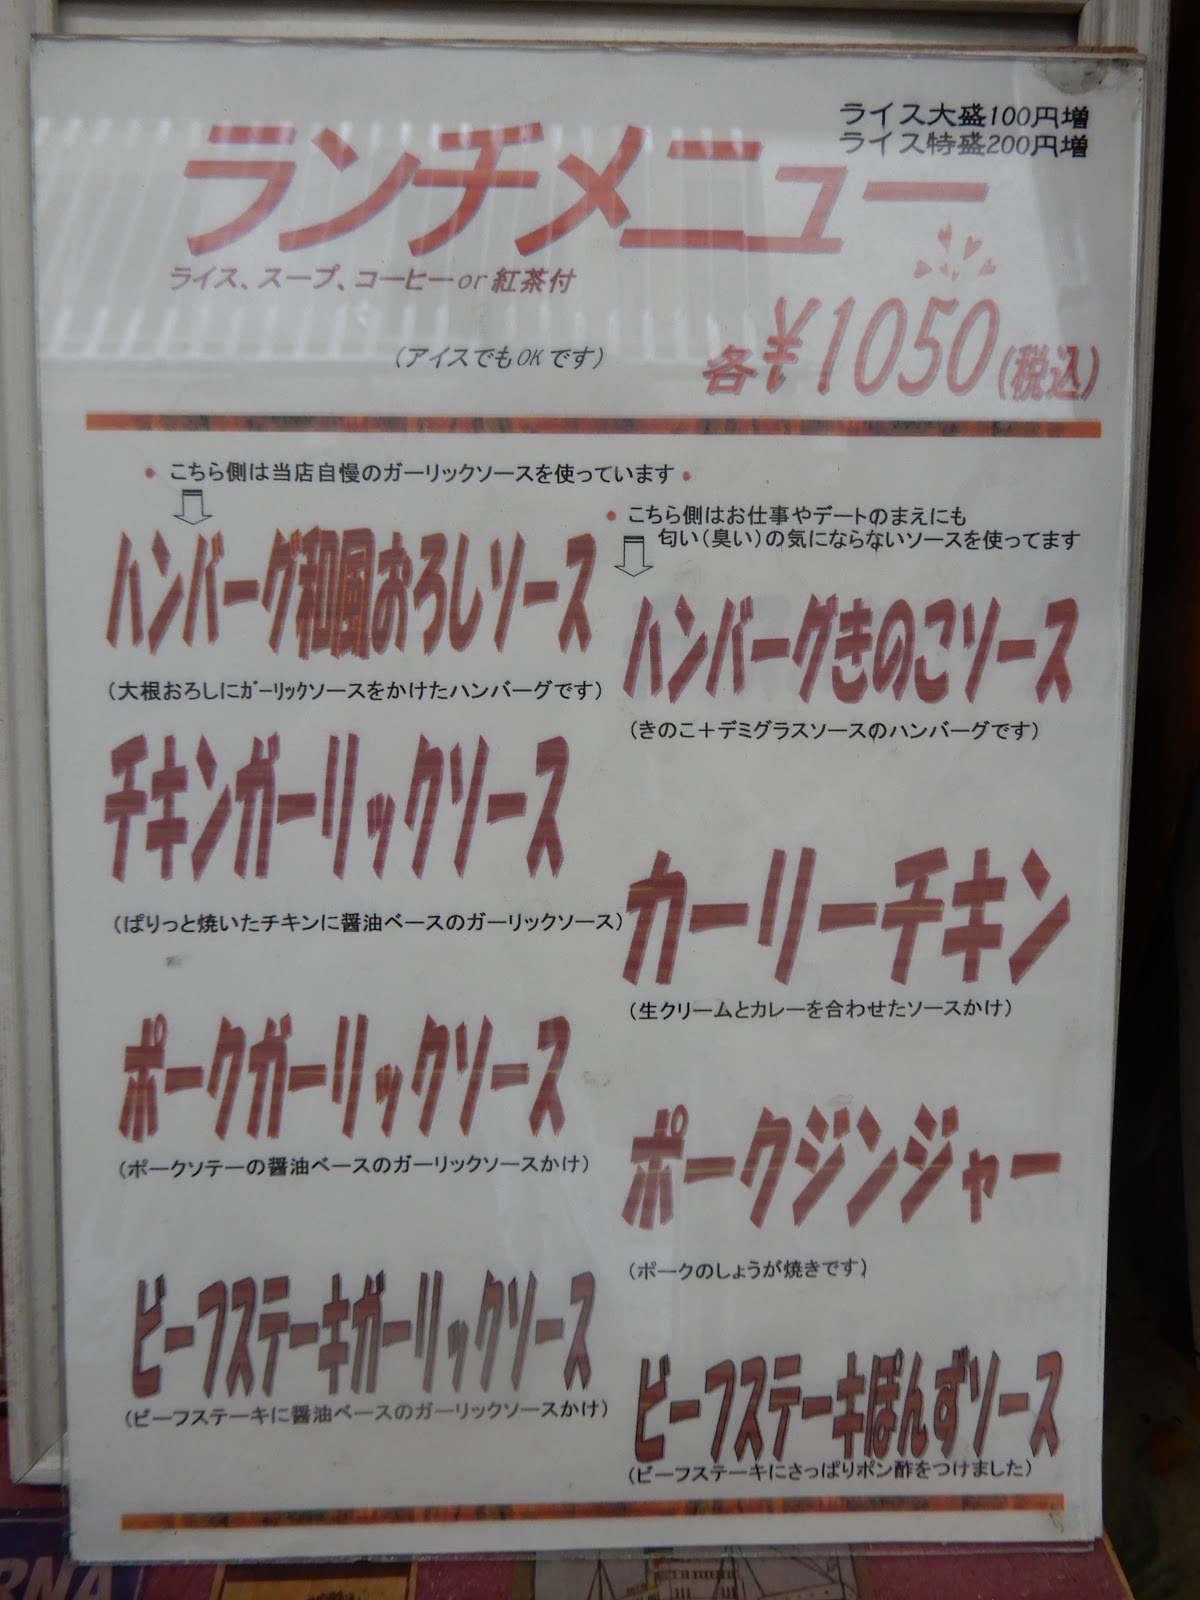 ライス大盛100円増
ライス特盛200円増
ランチメニュー
ライス、スープ、コーヒーor紅茶付
(アイスでもOKです)
各¥1050(税込)
こちら側は当店自慢のガーリックソースを使っています
ハンバーグ和風おろしソース
(大根おろしにｶﾞｰﾘｯｸソースをかけたハンバーグです)
チキンガーリックソース
(ぱりっと焼いたチキンに醤油ベースのガーリックソース)
ポークガーリックソース
(ポークソテーの醤油ベースのガーリックソースかけ)
ビーフステーキガーリックソース
(ビーフステーキに醤油ベースのガーリックソースかけ)
こちら側はお仕事やデートのまえにも
匂い(臭い)の気にならないソースを使ってます
ハンバーグきのこソース
(きのこ＋デミグラスソースのハンバーグです)
カーリーチキン
(生クリームとカレーを合わせたソースかけ)
ポークジンジャー
(ポークのしょうが焼きです)
ビーフステーキぽんずソース
(ビーフステーキにさっぱりポン酢をつけました)
RNA